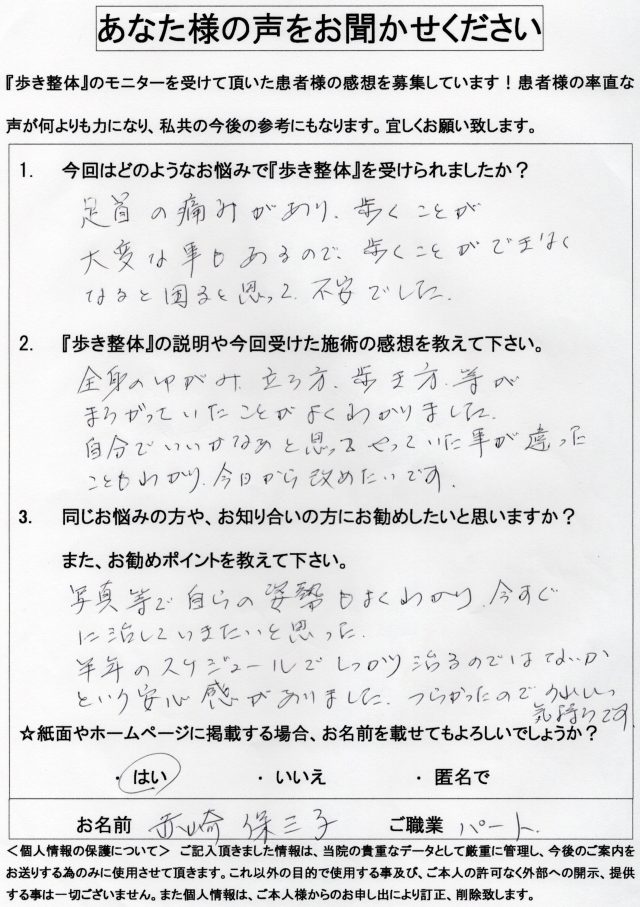 あなた様の声をお聞かせください
『歩き整体』のモニターを受けて頂いた患者様の感想を募集しています！患者様の率直な
声が何よりも力になり、私共の今後の参考にもなります。宜しくお願い致します。
1. 今回はどのようなお悩みで『歩き整体』を受けられましたか？
足首の痛みがあり、歩くことが
大変な事もあるので、歩くことができなく
なると困ると思って、不安でした。
2. 『歩き整体』の説明や今回受けた施術の感想を教えて下さい。
全身のゆがみ、立ち方、歩き方、等が
まちがっていたことがよくわかりました。
自分でいいかなぁと思ってやっていた事が違った
こともわかり、今日から改めたいです。
3. 同じお悩みの方や、お知り合いの方にお勧めしたいと思いますか？
また、お勧めポイントを教えて下さい。
写真等で自らの姿勢もよくわかり、今すぐ
に治していきたいと思った。
半年のスケジュールでしっかり治るのではないか
という安心感がありました。つらかったのでうれしい
気持ちです。
☆紙面やホームページに掲載する場合、お名前を載せてもよろしいでしょうか？
・はい ・いいえ ・匿名で
お名前 赤崎 保三子 ご職業 パート.
＜個人情報の保護について＞ ご記入頂きました情報は、当院の貴重なデータとして厳重に管理し、今後のご案内を
お送りする為のみに使用させて頂きます。これ以外の目的で使用する事及び、ご本人の許可なく外部への開示、提供
する事は一切ございません。また個人情報は、ご本人様からのお申し出により訂正、削除致します。